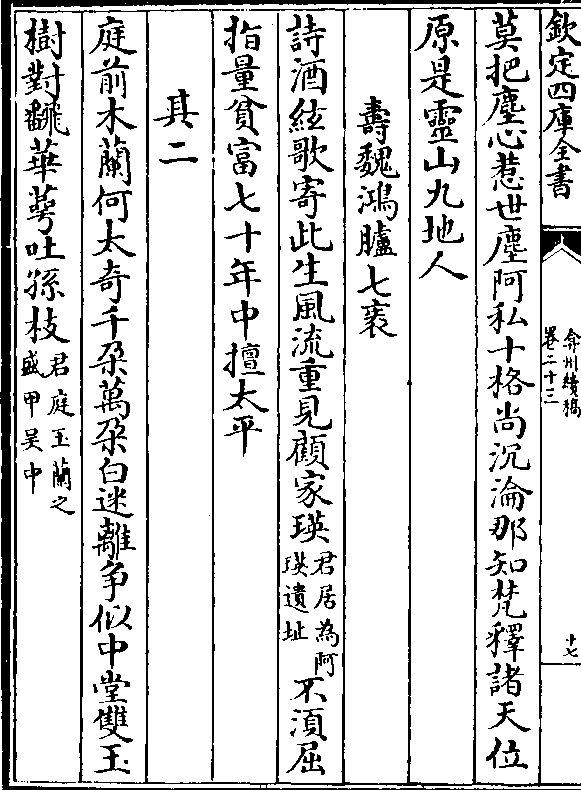 欽定四庫全書
弇州續稿
卷二十三
十七
莫把塵心惹世塵阿私十格尚沉淪那知梵釋諸天位
原是靈山九地人
壽魏鴻臚七袠
詩酒絃歌寄此生風流重見顧家瑛君居為阿瑛遺址不須屈
指量貧富七十年中擅太平
其二
庭前木蘭何太奇千朶萬朶白迷離争似中堂雙玉
樹對飜華萼吐孫枝君庭玉蘭之盛甲吳中